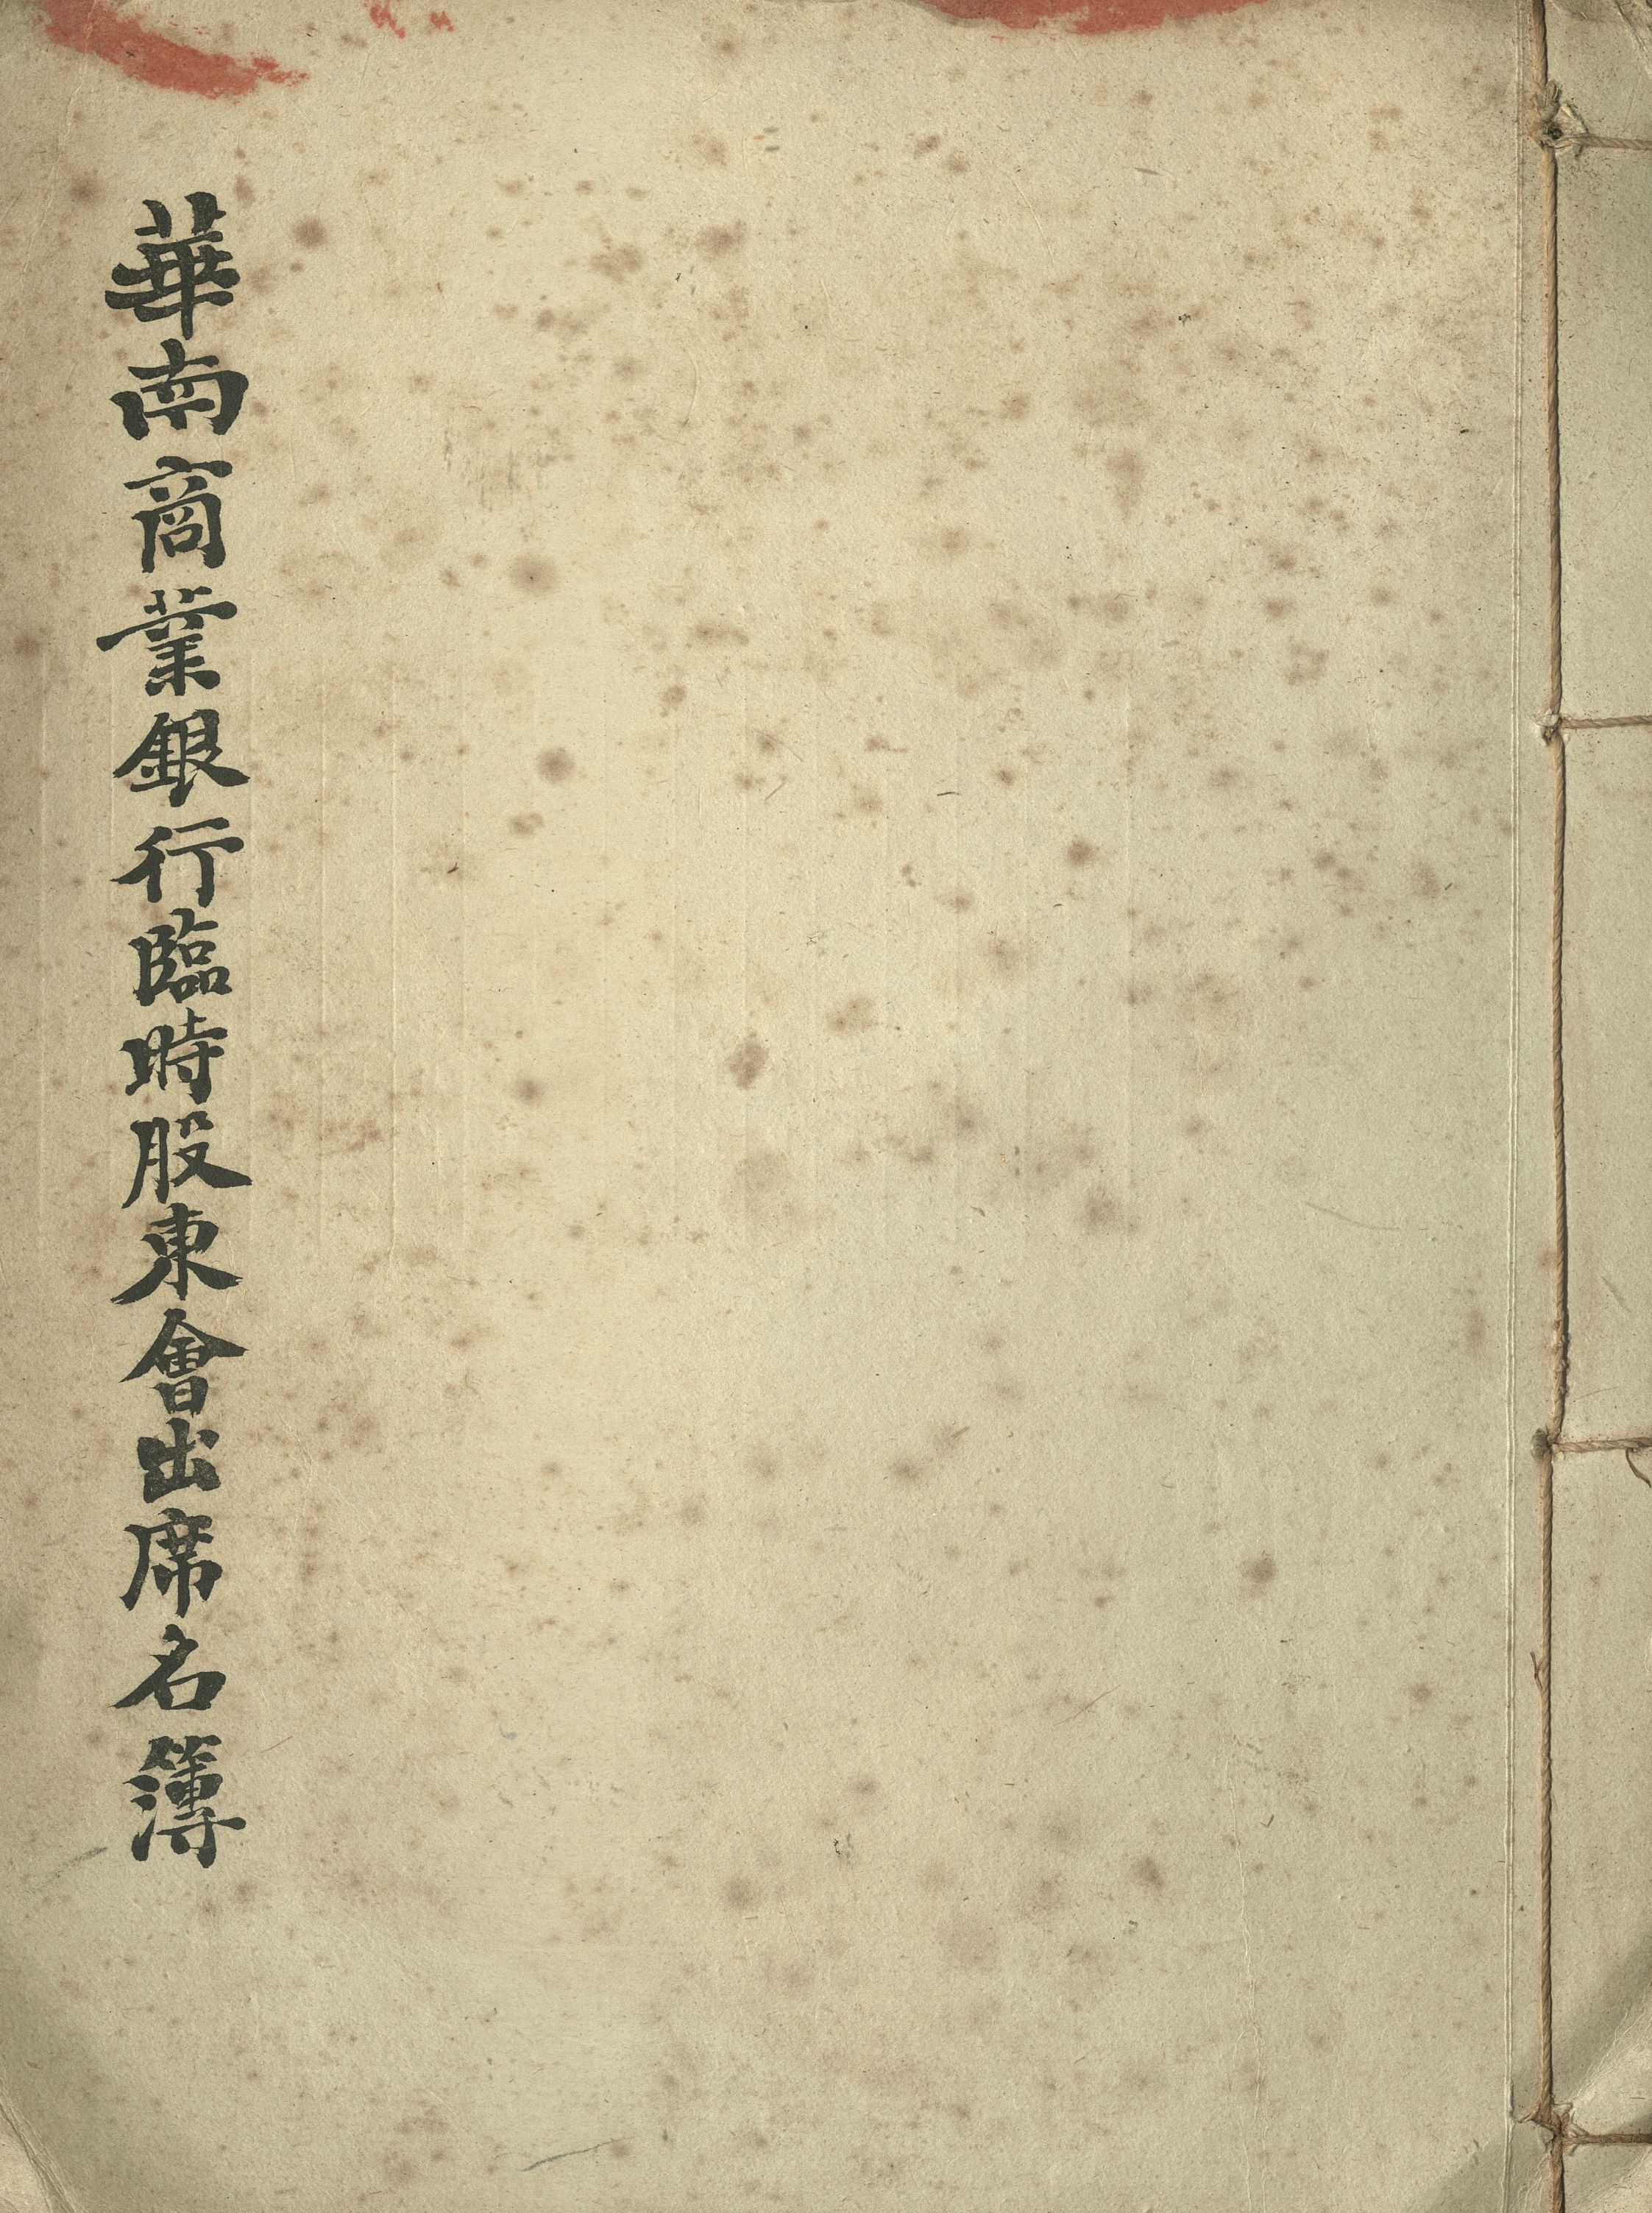 華南商業銀行臨時股東會出席名簿